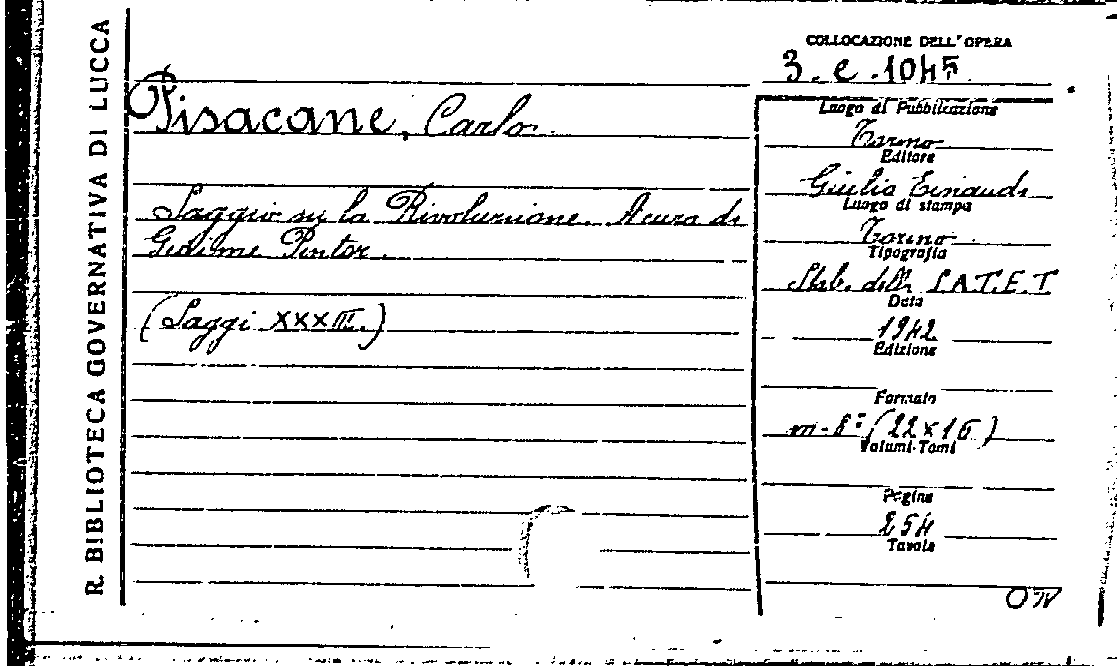 R. BIBLIOTECA GOVERNATIVA DI LUCCA
Pisacane, Carlo.
Saggio su la Rivoluzione. A cura di
Giaime Pintor.
(Saggi XXXIII.)
COLLOCAZIONE DELL'OPERA
3. e. 1045
Luogo di Pubblicazione
Torino
Editore
Giulio Einaudi
Luogo di stampa
Torino
Tipografia
Stab. della S.A.T.E.T
Data
1942
Edizione
Formato
in-8º (22x16)
Volumi-Tomi
Pagine
254
Tavole